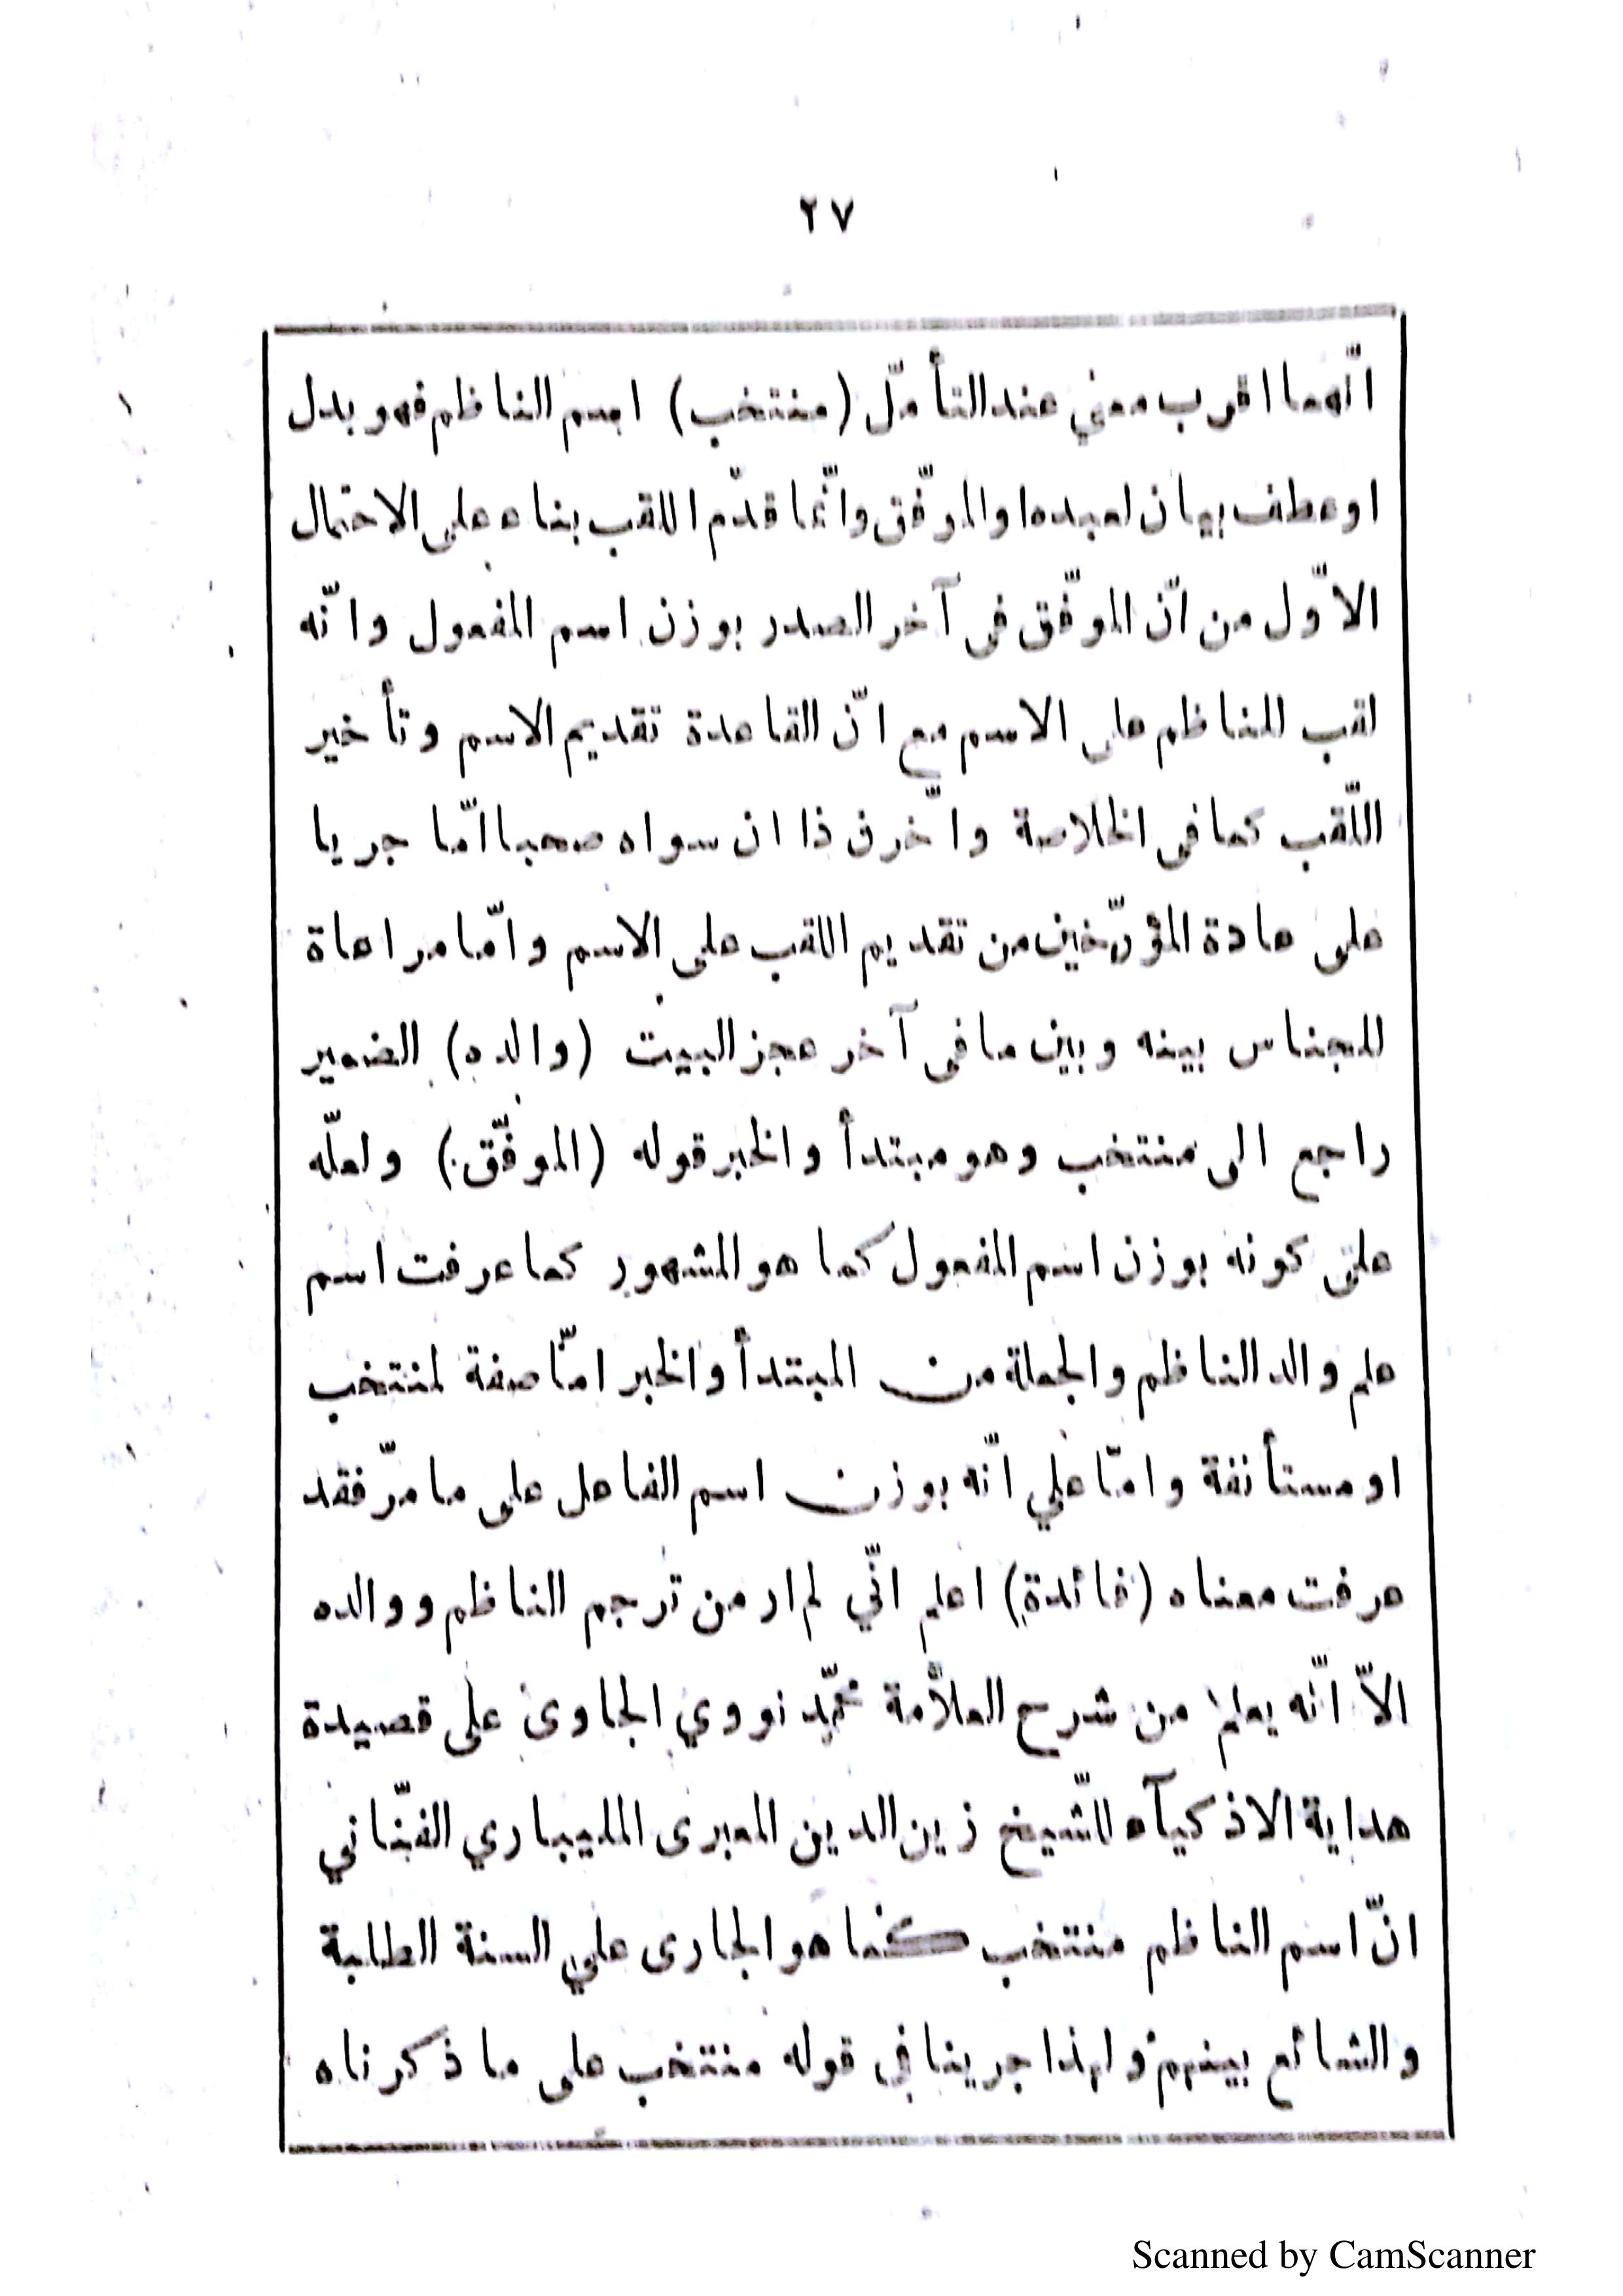 ٢٧
انّهما اقرب معني عند التأمّل (منتخب) اسم الناظم فهو بدل
او عطف بيان لعبده او الموفّق وانّما قدّم اللقب بناء على الاحتمال
الاوّل من انّ الموفّق فى آخر الصدر بوزن اسم المفعول وانّه
لقب للناظم على الاسم مع انّ القاعدة تقديم الاسم وتأخير
اللّقب كما فى الخلاصة واخّرن ذا ان سواه صحبا امّا جريا
على عادة المؤرّخين من تقديم اللقب على الاسم وامّا مراعاة
للجناس بينه وبين ما فى آخر عجز البيت (والده) الضمير
راجع الى منتخب وهو مبتدأ والخبر قوله (الموفّق) ولعلّه
على كونه بوزن اسم المفعول كما هو المشهور كما عرفت اسم
علم والد الناظم والجملة من المبتدأ والخبر امّا صفة لمنتخب
او مستأنفة وامّا علي انّه بوزن اسم الفاعل على ما مرّ فقد
عرفت معناه (فائدة) اعلم انّي لم ار من ترجم الناظم ووالده
الاّ انّه يعلم من شرح العلاّمة محمّد نووي الجاوى على قصيدة
هداية الاذكيآء للشّيخ زين الدين المعبرى المليباري الفنّاني
انّ اسم الناظم منتخب كما هو الجارى علي السنة الطلبة
والشائع بينهم ولهذا جرينا فى قوله منتخب على ما ذكرناه
Scanned by CamScanner